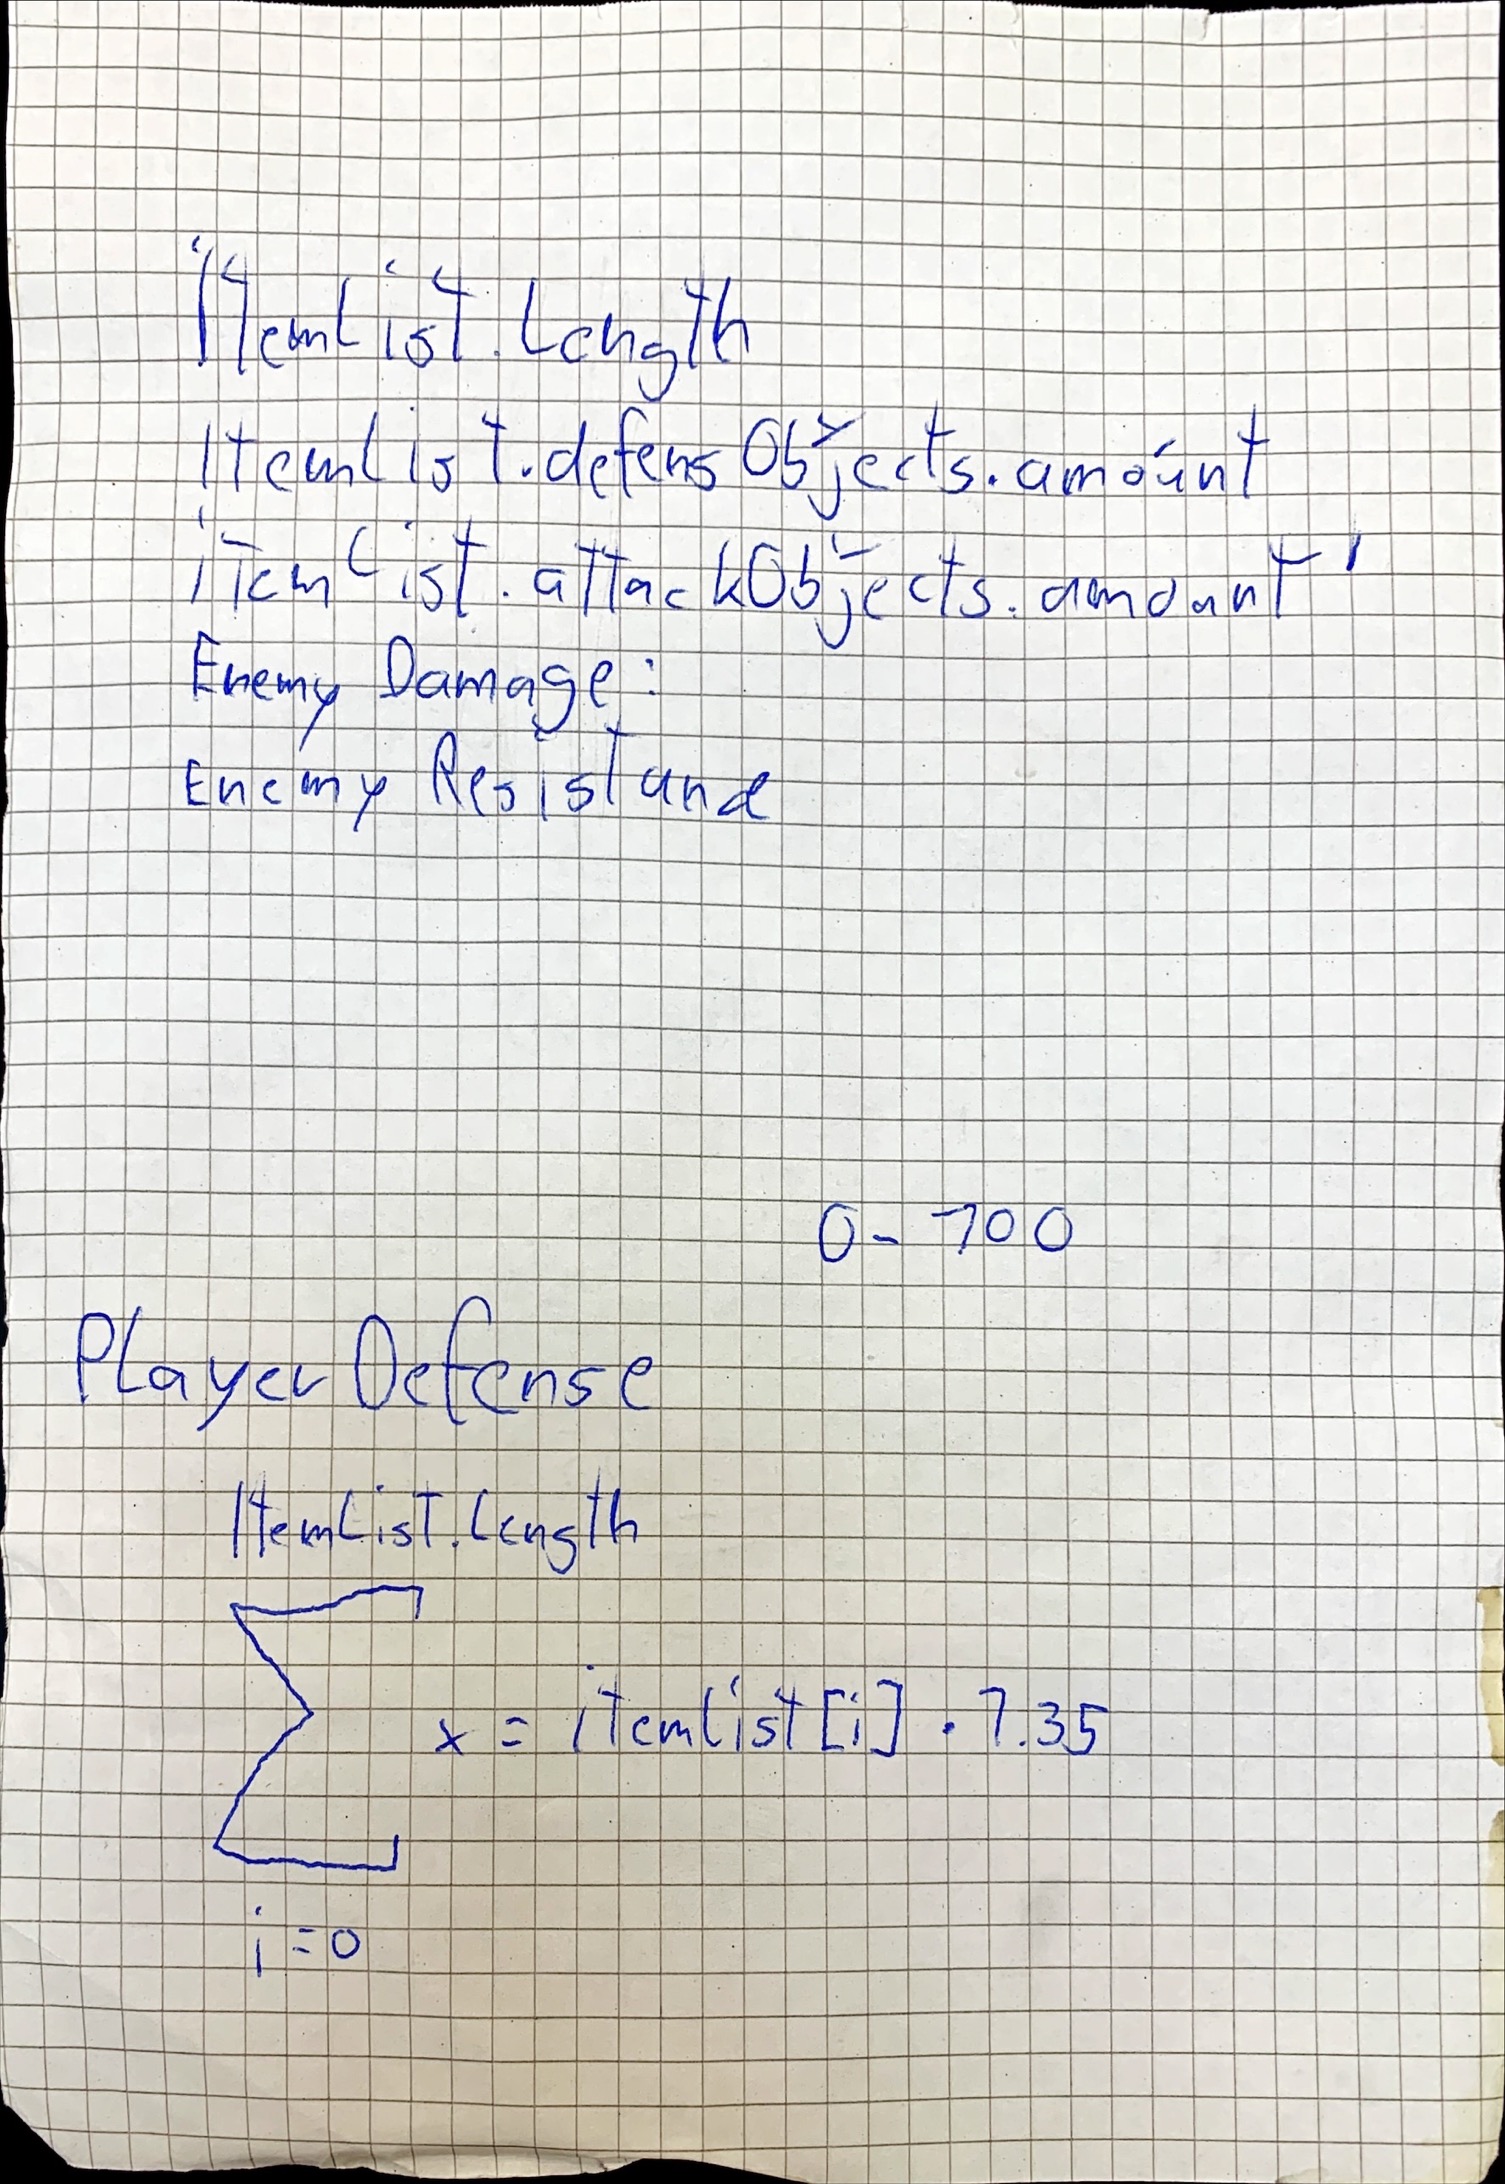 itemList.Length
ItemList.defensObjects.amount
itemList.attackObjects.amount
Enemy Damage:
Enemy Resistance
0- 100
PlayerDefense
ItemList.Length
∑ x = itemList[i] · 1.35
i=0